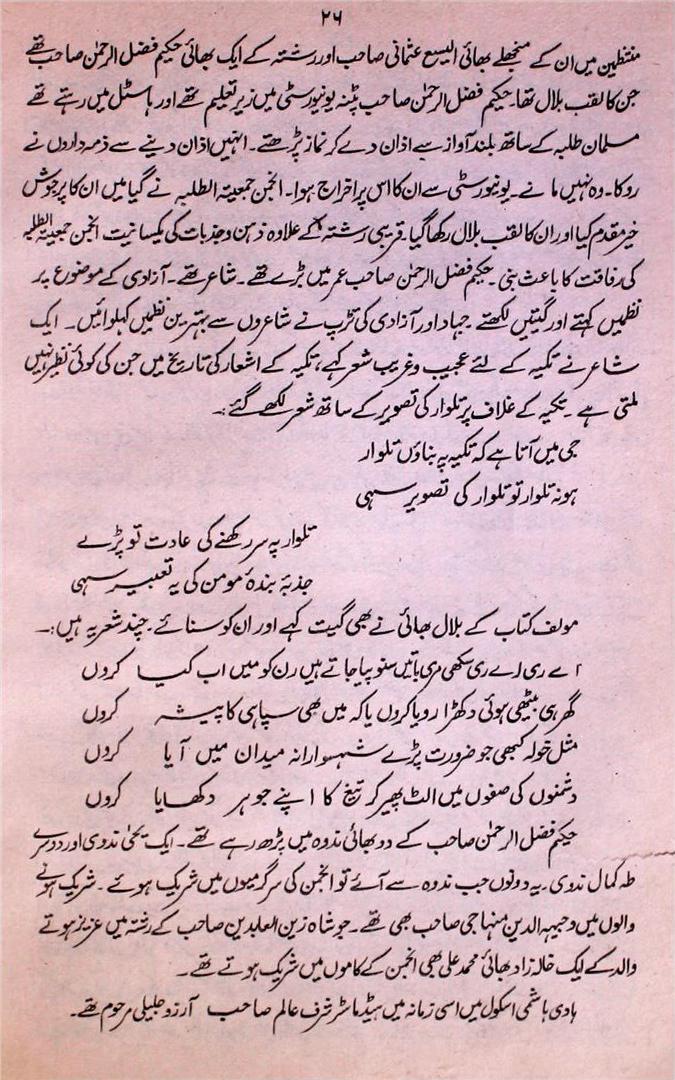 ۲۶
منتظمین میں ان کے منجھلے بھائی الیسع عثمانی صاحب اور رشتہ کے ایک بھائی حکیم فضل الرحمٰن صاحب تھے
جن کا لقب بلال تھا۔ حکیم فضل الرحمٰن صاحب پٹنہ یونیورسٹی میں زیر تعلیم تھے اور ہاسٹل میں رہتے تھے
مسلمان طلبہ کے ساتھ بلند آواز سے اذان دے کر نماز پڑھتے۔ انہیں اذان دینے سے ذمہ داروں نے
روکا۔ وہ نہیں مانے۔ یونیورسٹی سے ان کا اس پر اخراج ہوا۔ انجمن جمعیۃ الطلبہ نے گیا میں ان کا پرجوش
خیر مقدم کیا اور ان کا لقب بلال رکھا گیا۔ قریبی رشتہ کے علاوہ ذہن و جذبات کی یکسانیت انجمن جمعیۃ الطلبہ
کی رفاقت کا باعث بنی۔ حکیم فضل الرحمٰن صاحب عمر میں بڑے تھے۔ شاعر تھے۔ آزادی کے موضوع پر
نظمیں کہتے اور گیتیں لکھتے۔ جہاد اور آزادی کی تڑپ نے شاعروں سے بہترین نظمیں کہلوائیں۔ ایک
شاعر نے تکیہ کے لئے عجیب و غریب شعر کہے، تکیہ کے اشعار کی تاریخ میں جن کی کوئی نظیر نہیں
ملتی ہے۔ تکیہ کے غلاف پر تلوار کی تصویر کے ساتھ شعر لکھے گئے:۔
جی میں آتا ہے کہ تکیہ پہ بناؤں تلوار
ہو نہ تلوار تو تلوار کی تصویر سہی
تلوار پہ سر رکھنے کی عادت تو پڑے
جذبۂ بندۂ مومن کی یہ تعبیر سہی
مولف کتاب کے بلال بھائی نے بھی گیت کہے اور ان کو سنائے۔ چند شعر یہ ہیں:۔
اے ری اے ری سکھی مری باتیں سنو پیا جاتے ہیں رن کو میں اب کیا کروں
گھر ہی بیٹھی ہوئی دکھڑا رویا کروں یا کہ میں بھی سپاہی کا پیشہ کروں
مثل خولہ کبھی جو ضرورت پڑے شہسوارانہ میدان میں آیا کروں
دشمنوں کی صفوں میں الٹ پھیر کر تیغ کا اپنے جوہر دکھایا کروں
حکیم فضل الرحمٰن صاحب کے دو بھائی ندوہ میں پڑھ رہے تھے۔ ایک یحیٰی ندوی اور دوسرے
طہ کمال ندوی۔ یہ دونوں جب ندوہ سے آئے تو انجمن کی سرگرمیوں میں شریک ہوئے۔ شریک ہونے
والوں میں وجیہہ الدین منہاجی صاحب بھی تھے۔ جو شاہ زین العابدین صاحب کے رشتہ میں عزیز ہوتے
والد کے ایک خالہ زاد بھائی محمد علی بھی انجمن کے کاموں میں شریک ہوتے تھے۔
ہادی ہاشمی اسکول میں اسی زمانہ میں ہیڈ ماسٹر شرف عالم صاحب آرزو جلیلی مرحوم تھے۔